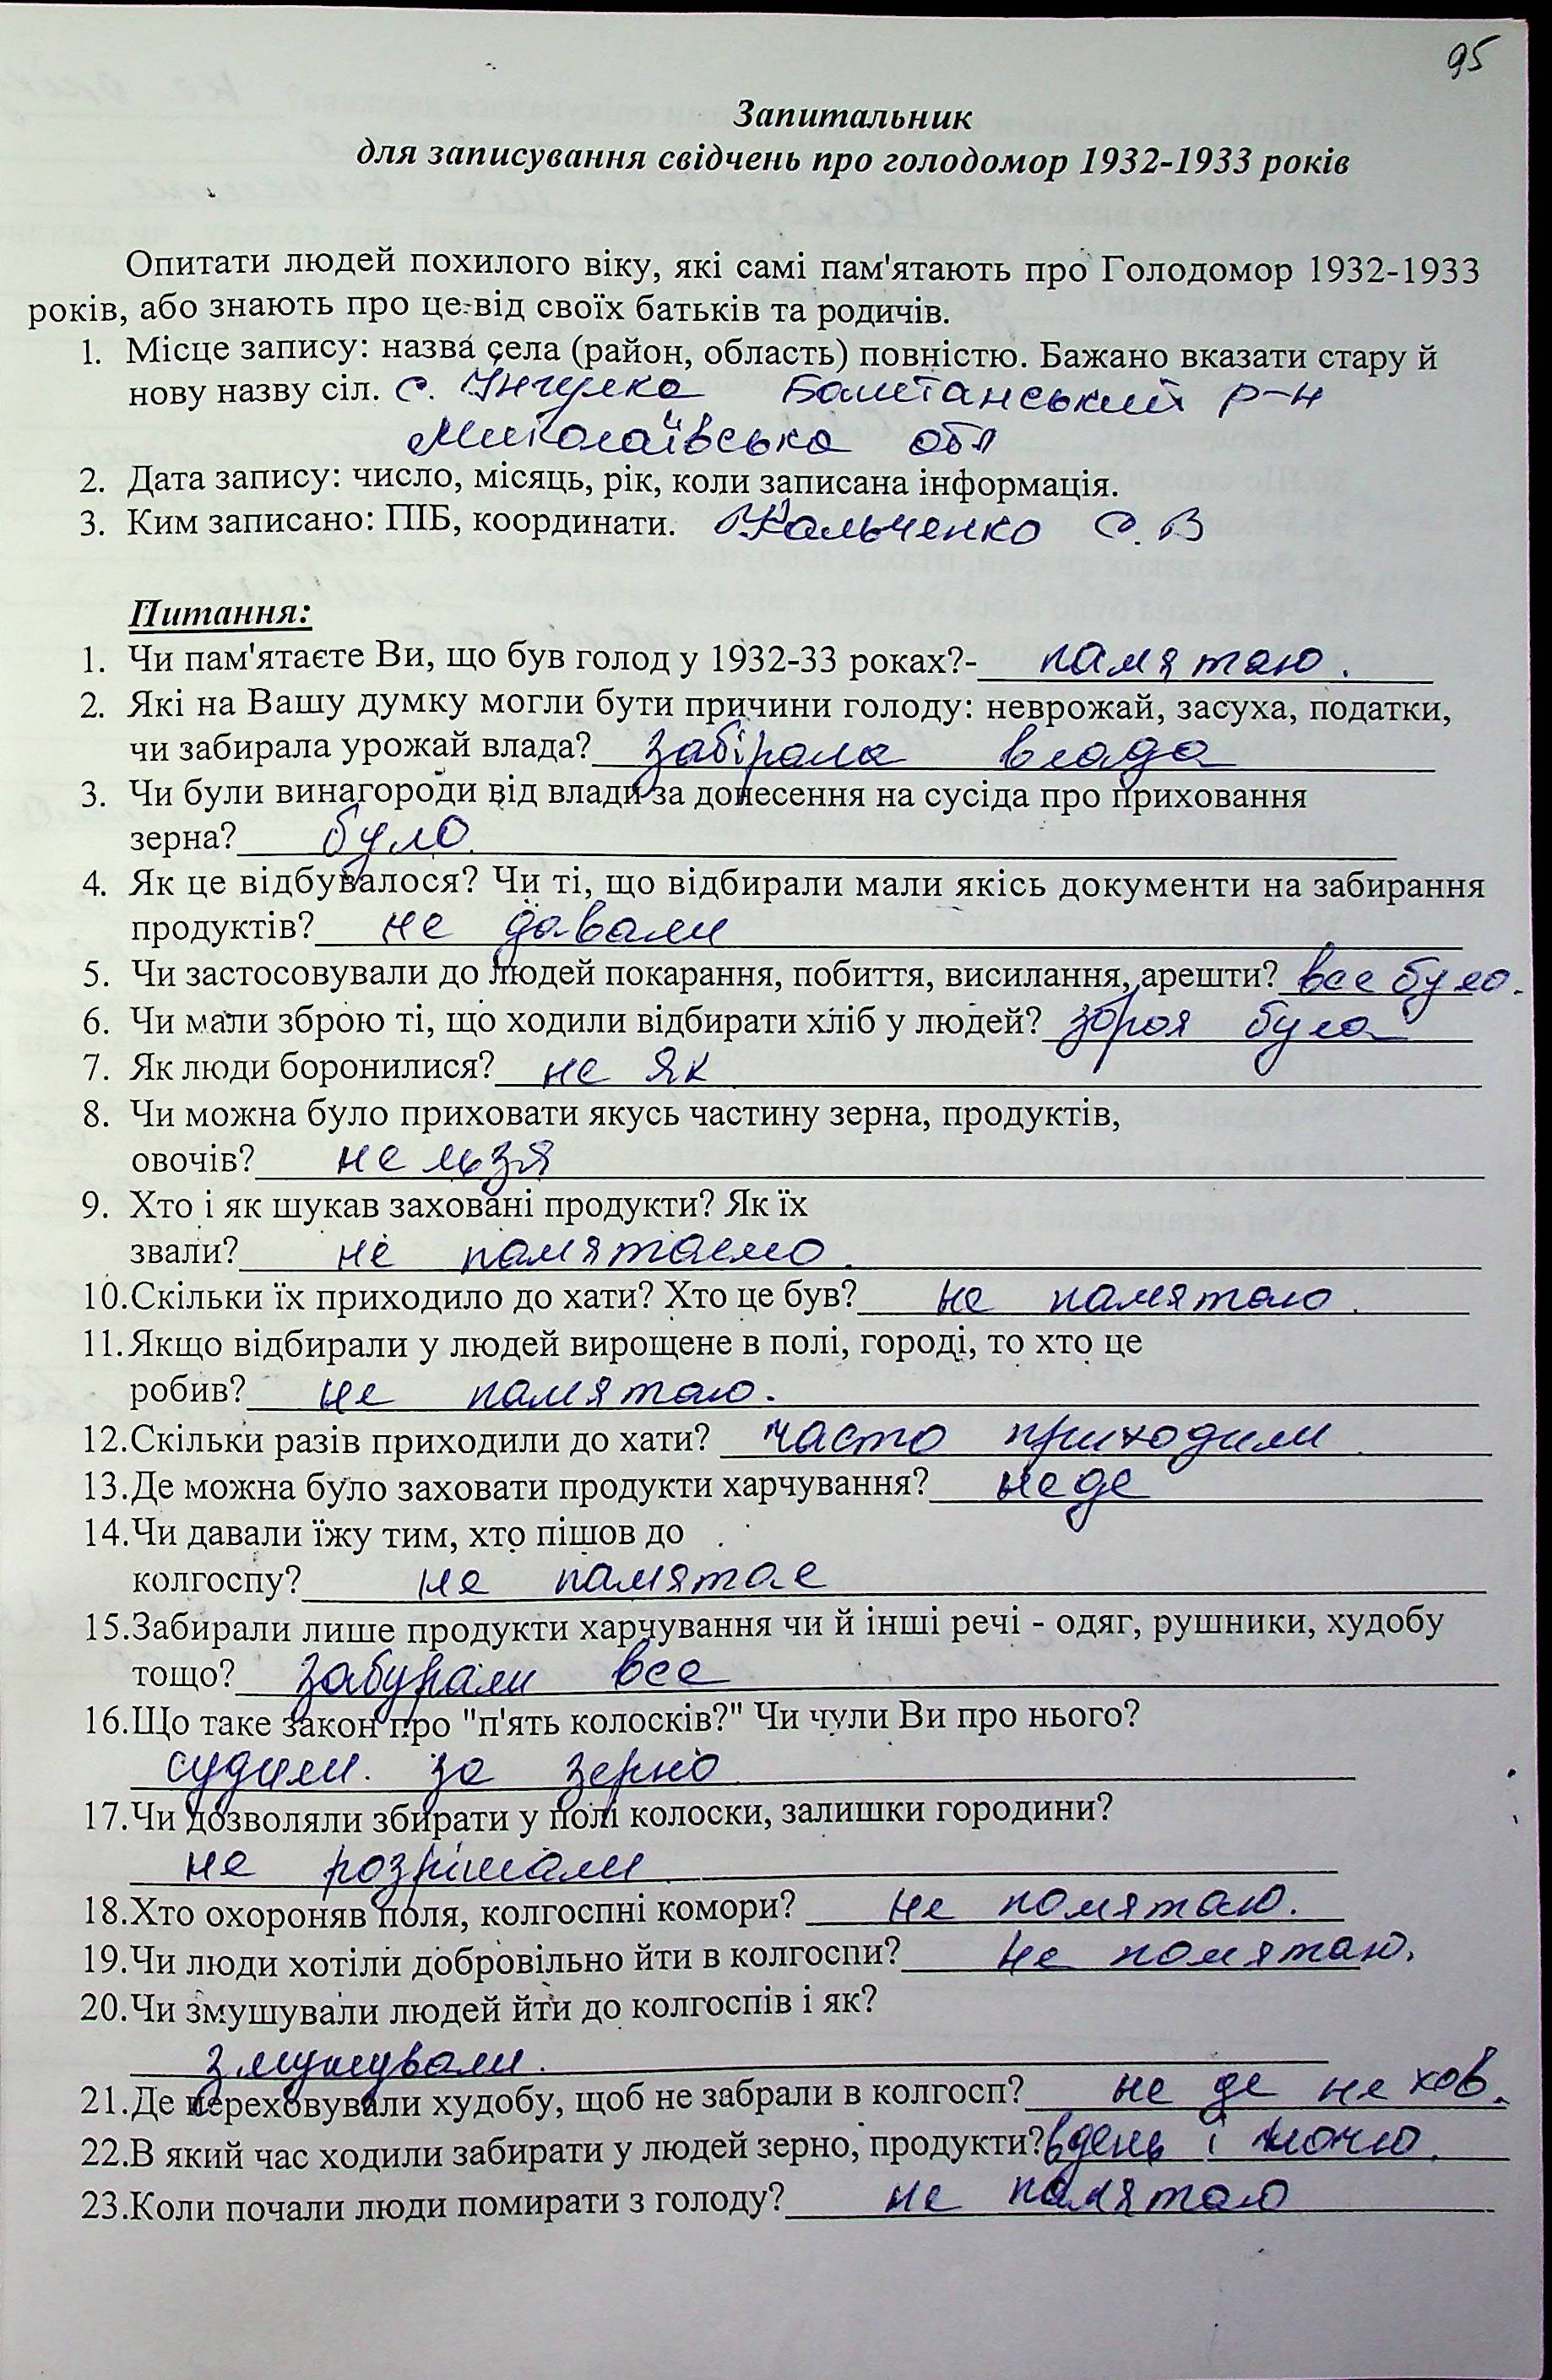 95
Запитальник
для записування свідчень про голодомор 1932-1933 років
Опитати людей похилого віку, які самі пам'ятають про Голодомор 1932-1933
років, або знають про це від своїх батьків та родичів.
1. Місце запису: назва села (район, область) повністю. Бажано вказати стару й
нову назву сіл. с. Інгулка Баштанський р-н
Миколаївська обл
2. Дата запису: число, місяць, рік, коли записана інформація.
3. Ким записано: ПІБ, координати. Кальченко С. В
Питання:
1. Чи пам'ятаєте Ви, що був голод у 1932-33 роках?- памятаю.
2. Які на Вашу думку могли бути причини голоду: неврожай, засуха, податки,
чи забирала урожай влада? забірала влада
3. Чи були винагороди від влади за донесення на сусіда про приховання
зерна? було.
4. Як це відбувалося? Чи ті, що відбирали мали якісь документи на забирання
продуктів? не давали
5. Чи застосовували до людей покарання, побиття, висилання, арешти? все було.
6. Чи мали зброю ті, що ходили відбирати хліб у людей? зброя була
7. Як люди боронилися? не як
8. Чи можна було приховати якусь частину зерна, продуктів,
овочів? не льзя
9. Хто і як шукав заховані продукти? Як їх
звали? не памятаємо.
10.Скільки їх приходило до хати? Хто це був? не памятаю.
11.Якщо відбирали у людей вирощене в полі, городі, то хто це
робив? не памятаю.
12.Скільки разів приходили до хати? часто приходили.
13.Де можна було заховати продукти харчування? неде
14.Чи давали їжу тим, хто пішов до
колгоспу? не памятає
15.Забирали лише продукти харчування чи й інші речі - одяг, рушники, худобу
тощо? забурали все
16.Що таке закон про "п'ять колосків?" Чи чули Ви про нього?
судили. за зерно.
17.Чи дозволяли збирати у полі колоски, залишки городини?
не розрішали.
18.Хто охороняв поля, колгоспні комори? не помятаю.
19.Чи люди хотіли добровільно йти в колгоспи? не помятаю.
20.Чи змушували людей йти до колгоспів і як?
змушували.
21.Де переховували худобу, щоб не забрали в колгосп? не де не хов.
22.В який час ходили забирати у людей зерно, продукти? вдень і ночю.
23.Коли почали люди помирати з голоду? не памятаю